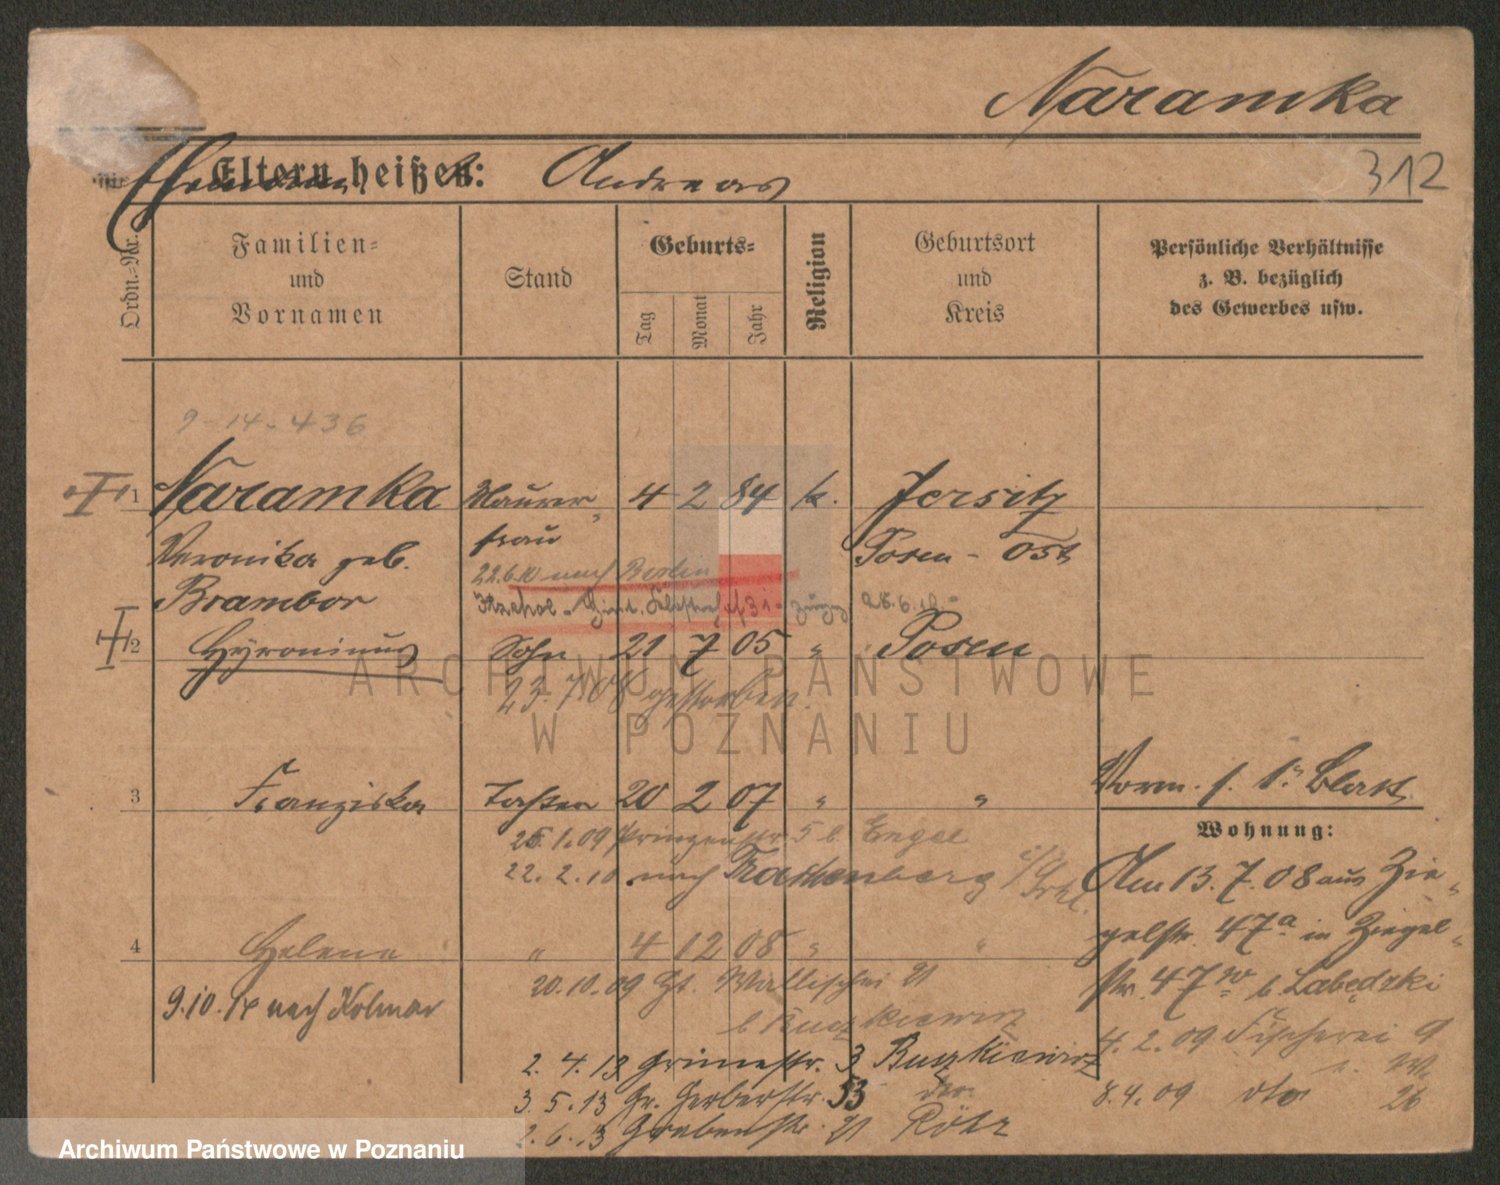 Naramka
Eltern heißen: Andreas
312
Ordn.-Nr.
Familien-
und
Vornamen
Stand
Geburts-
Tag
Monat
Jahr
Religion
Geburtsort
und
Kreis
Persönliche Verhältnisse
z. B. bezüglich
des Gewerbes usw.
9-14-436
1 Naramka Maurer- 4 2 84 k. Jersitz
Veronika geb. frau Posen - Ost
22.6.10 nach Berlin
Brambor
28.6.10
2 Hyronimus Sohn 21 7 05 " Posen
23.7.08 gestorben.
ARCHIWUM PAŃSTWOWE
W POZNANIU
3 Franziska Tochter 20 2 07 " "
Vorm. s. 1. Blatt
Wohnung:
1.09 Prinzenstr. 5 b Engel
22. 2. 10 nach
Am 13. 7. 08 aus Zie-
gelstr. 47a in Ziegel-
4 Helene " 4 12 08 " "
str. 47 b Labędzki
20.10.09 Wallischei
9.10.14 nach Kolmar
4. 2. 09 Fischerei 9
2. 4. 13 Grimmstr. 3 Ruszkiewicz
8.4.09 dto 26
3. 5. 13 Gr. Gerberstr. 53
6. 13 Grabenstr. 21
Archiwum Państwowe w Poznaniu